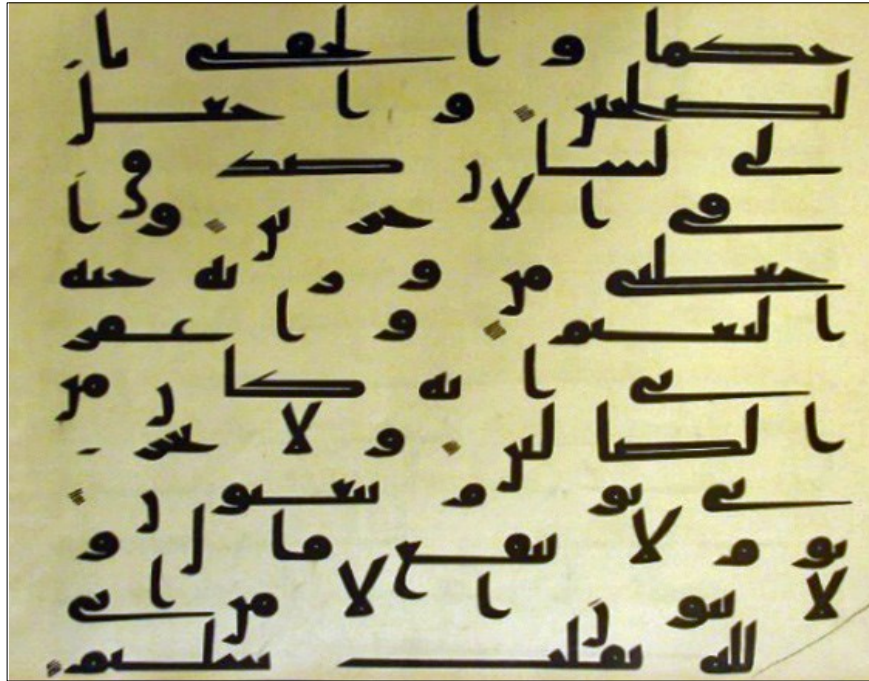 حكما والحقنى با
لصلحين واجعل
لى لسان صدق
فى الاخرين وا
جعلنى من ورثه جنه
النعيم واغفر
بى انه كان من
الضالين ولا تخز
نى يوم يبعثون
يوم لا ينفع مال و
لا بنون الا من اتى
الله بقلب سليم